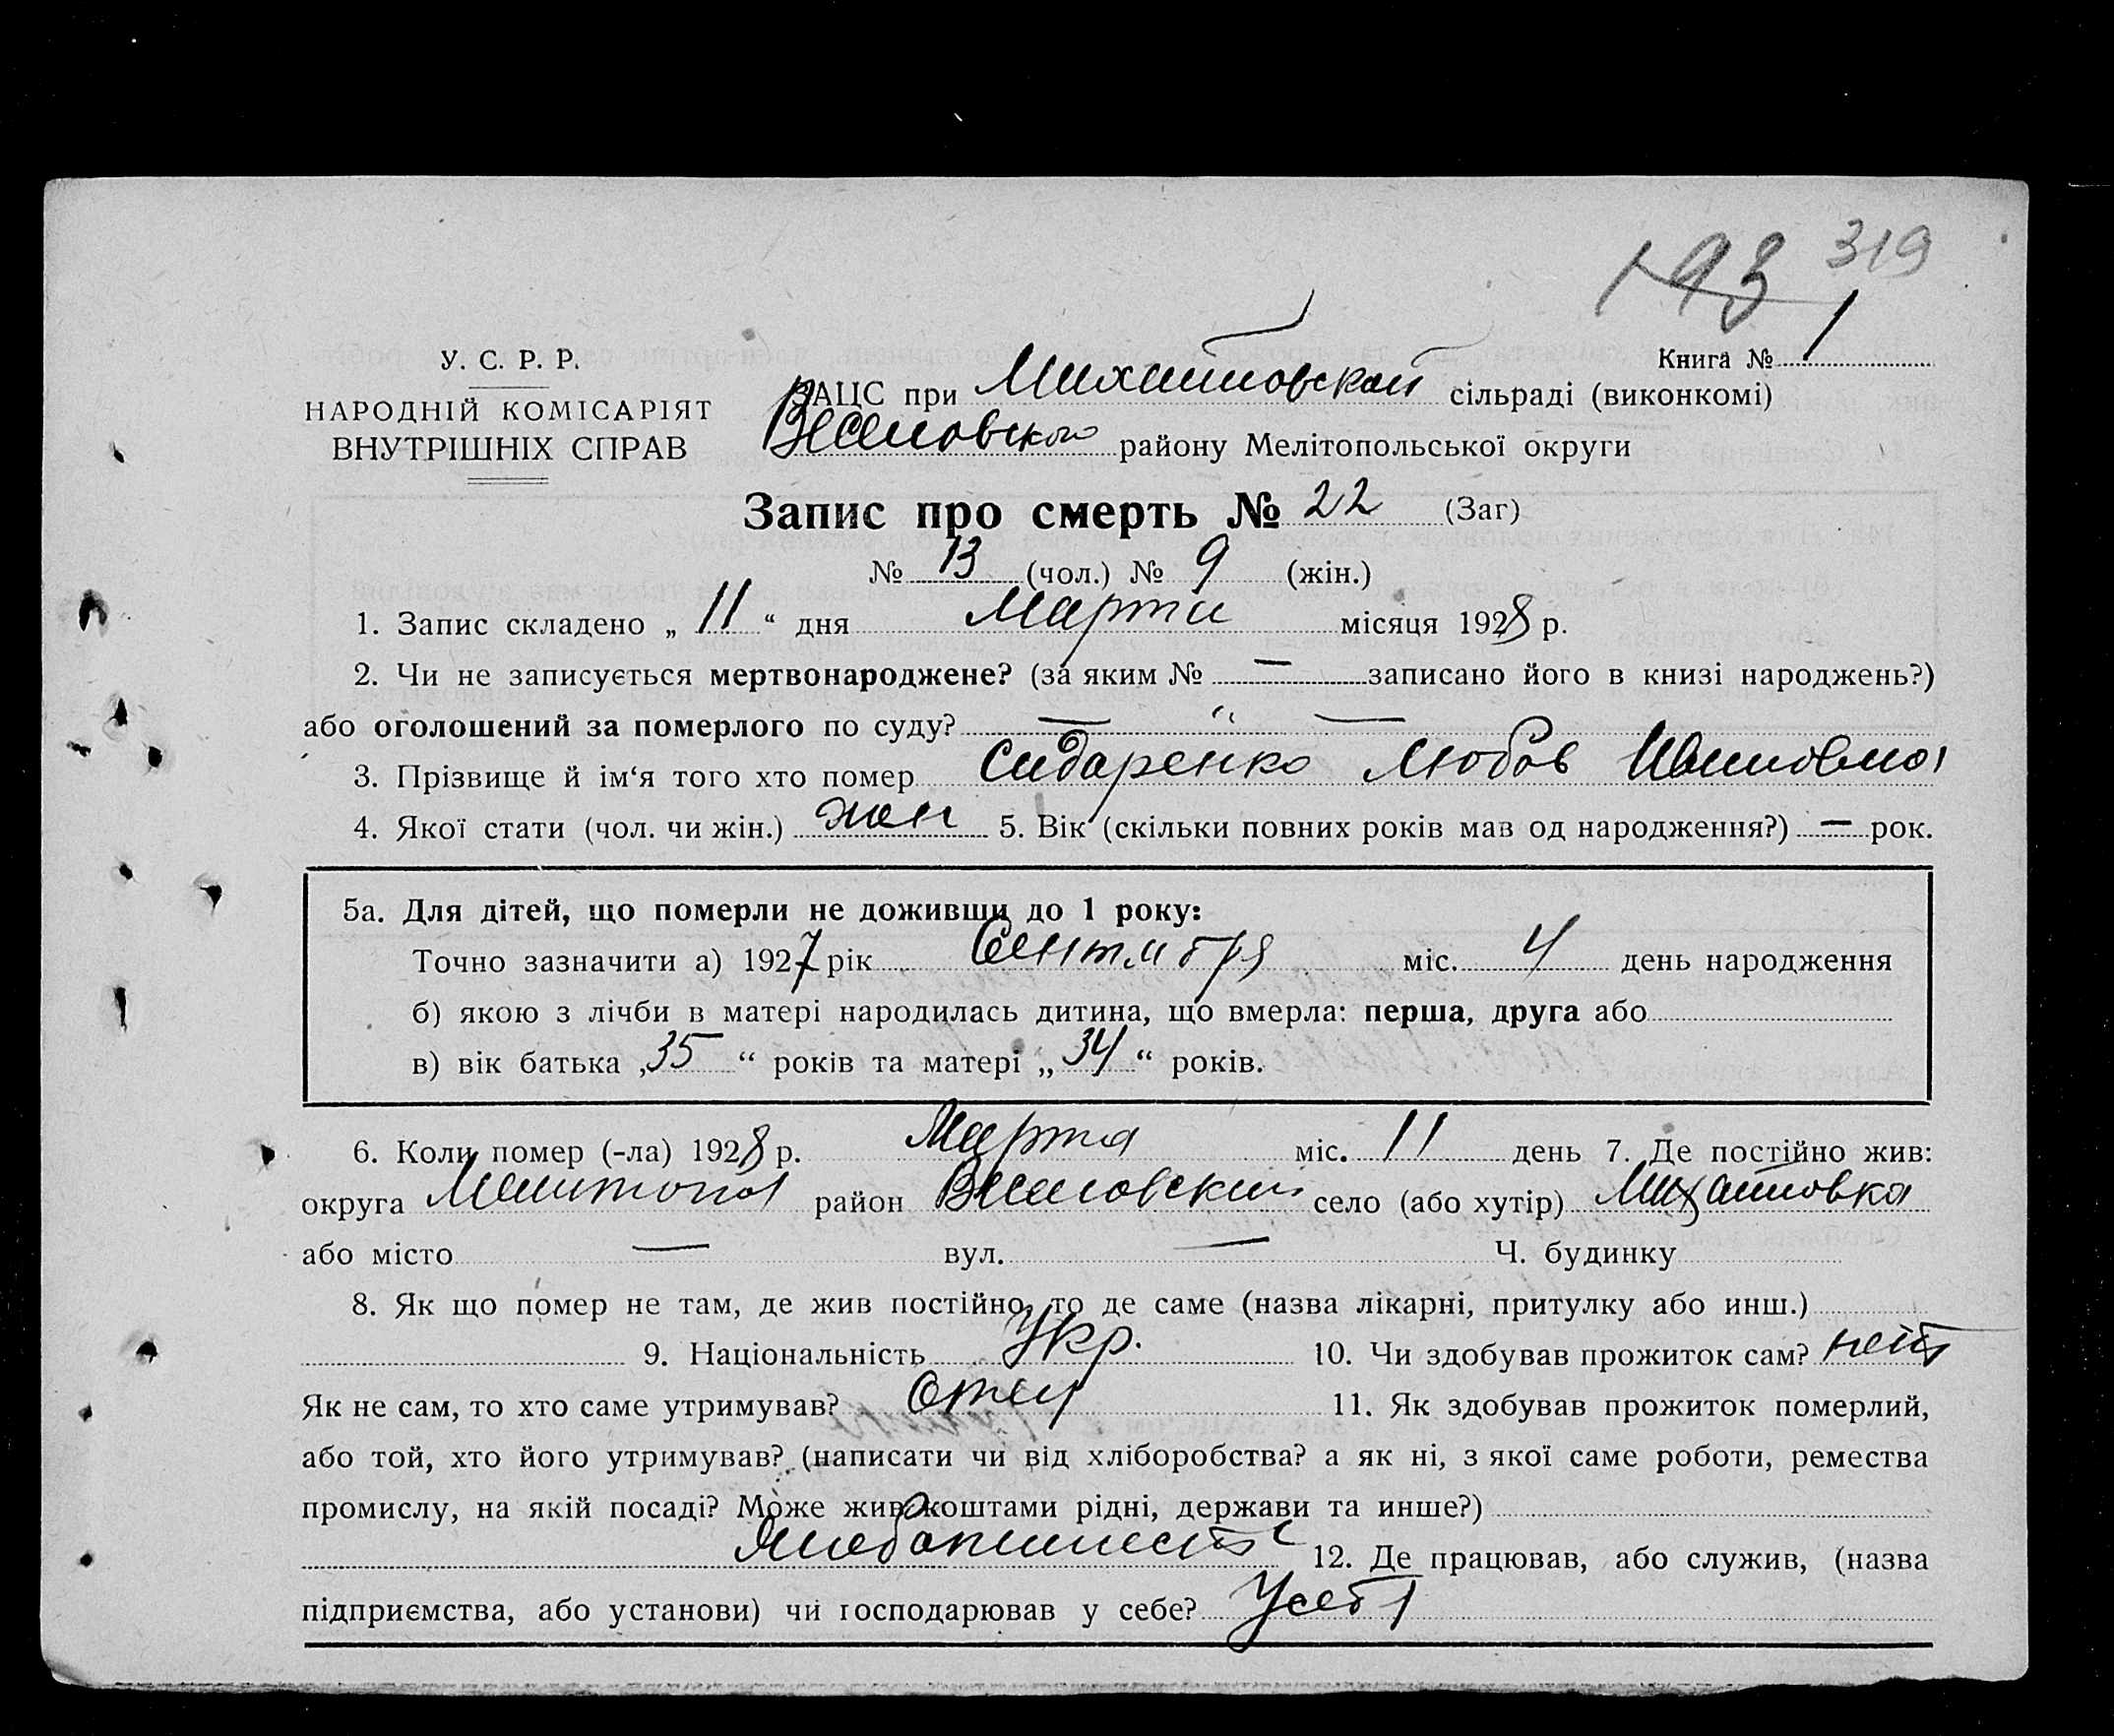 193 319
Книга № 1
У. С. Р. Р.
НАРОДНІЙ КОМІСАРІЯТ
ВНУТРІШНІХ СПРАВ
ЗАЦС при Михайловской сільраді (виконкомі)
Веселовского району Мелітопольської округи
Запис про смерть № 22 (Заг)
№ 13 (чол.) № 9 (жін.)
1. Запис складено „ 11 “ дня Марта місяця 1928 р.
2. Чи не записується мертвонароджене? (за яким № — записано його в книзі народжень?)
або оголошений за померлого по суду? — “ —
3. Прізвище й ім‘я того хто помер Сидаренко Любов Ивановна
4. Якої стати (чол. чи жін.) жен 5. Вік (скільки повних років мав од народження?) — рок.
5а. Для дітей, що померли не доживши до 1 року:
Точно зазначити а) 1927 рік Сентября міс. 4 день народження
б) якою з лічби в матері народилась дитина, що вмерла: перша, друга або
в) вік батька „35“ років та матері „34“ років.
6. Коли помер (-ла) 1928 р. Марта міс. 11 день 7. Де постійно жив:
округа Мелитопол район Веселовский село (або хутір) Михайловка
або місто — вул. — Ч. будинку
8. Як що помер не там, де жив постійно, то де саме (назва лікарні, притулку або инш.)
9. Національність Укр. 10. Чи здобував прожиток сам? нет
Як не сам, то хто саме утримував? Отец 11. Як здобував прожиток померлий,
або той, хто його утримував? (написати чи від хліборобства? а як ні, з якої саме роботи, ремества
промислу, на якій посаді? Може жив коштами рідні, держави та инше?)
12. Де працював, або служив, (назва
підприємства, або установи) чи господарював у себе? У себя